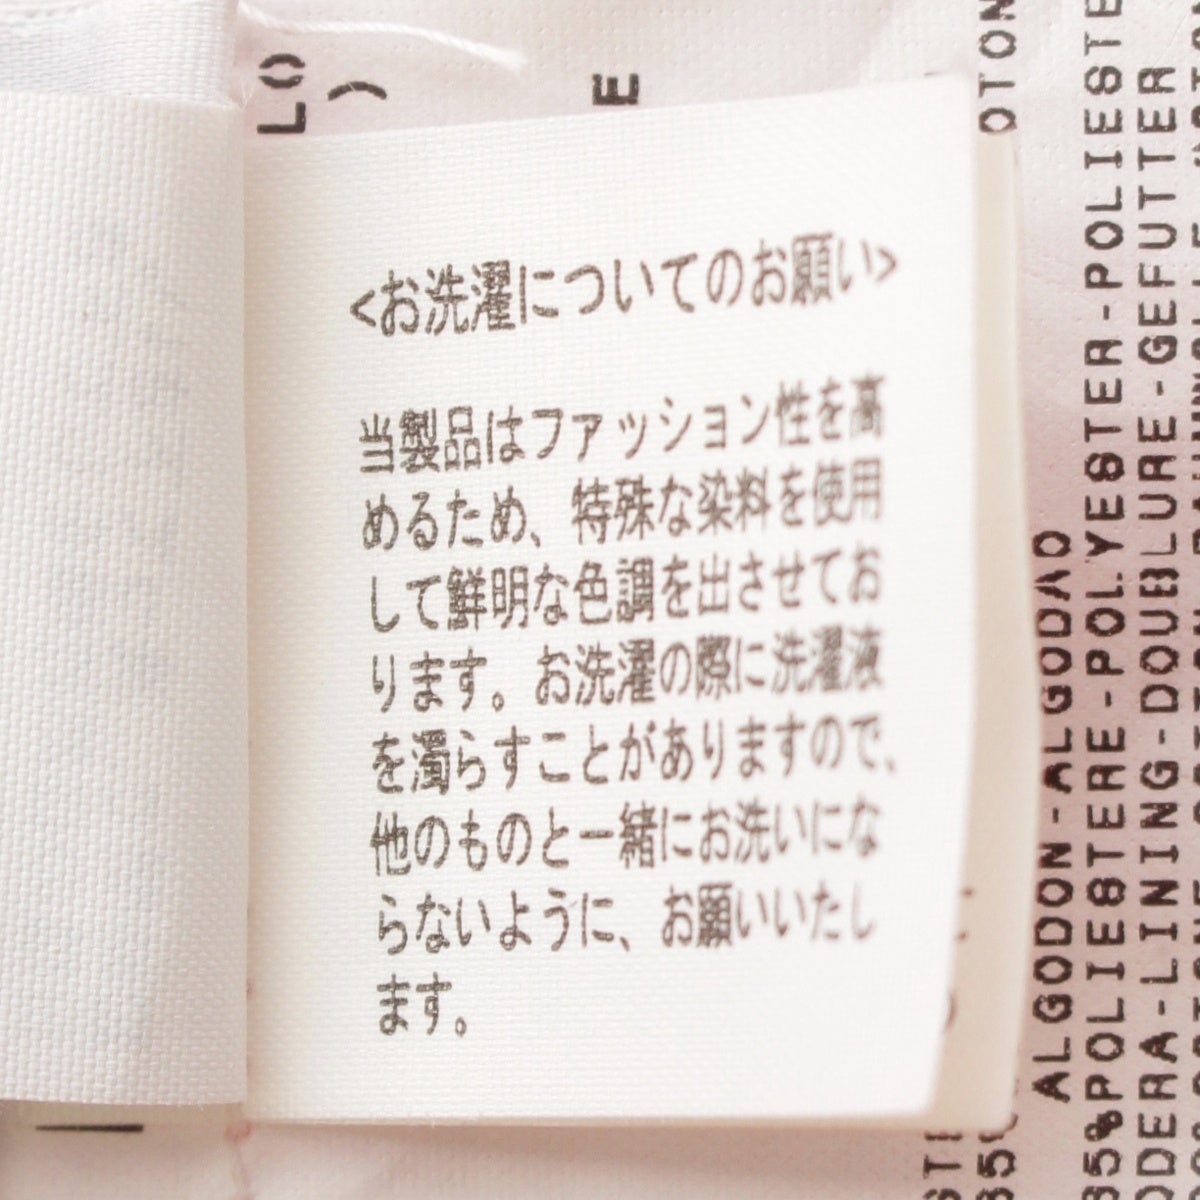 <お洗濯についてのお願い>
当製品はファッション性を高
めるため、特殊な染料を使用
して鮮明な色調を出させてお
ります。お洗濯の際に洗濯液
を濁らすことがありますので、
他のものと一緒にお洗いにな
らないように、お願いいたし
ます。
LO
)
E
OTON
ALGODON-ALGODAO
95%POLIESTERE-POLYESTER-POLIESTE
ODERA-LINING-DOUBLURE-GEFUTTER